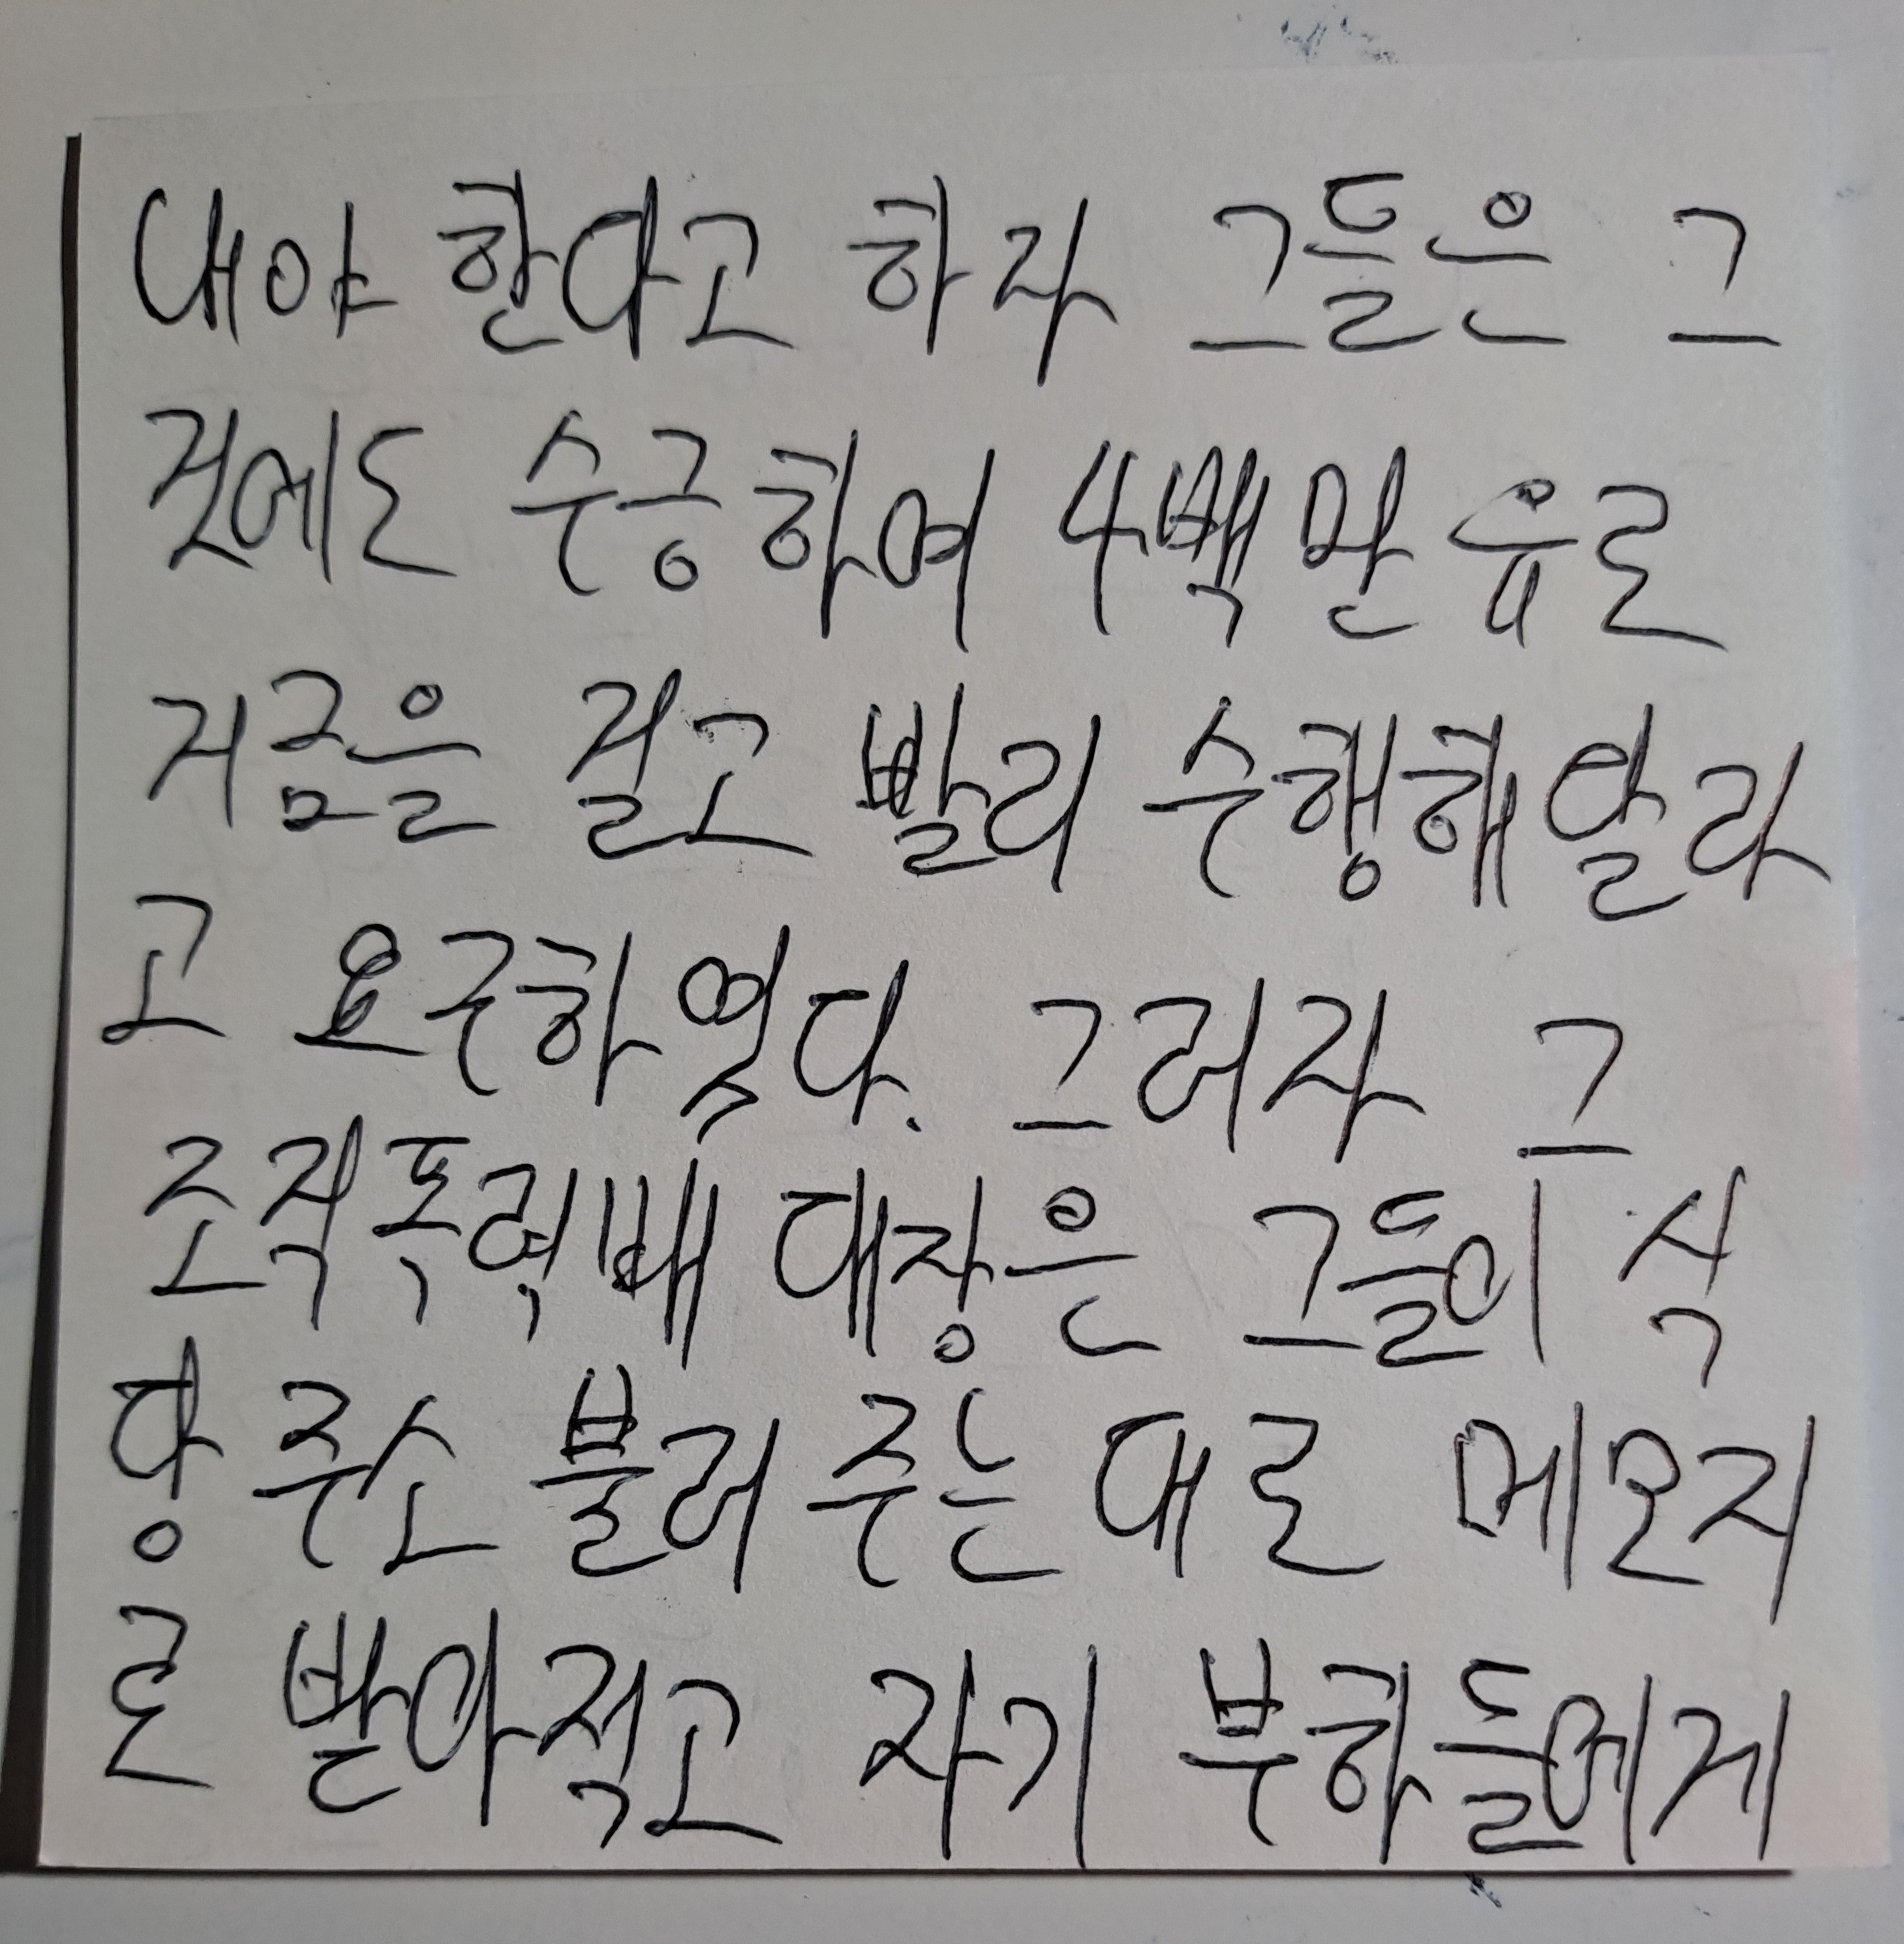 내야 한다고 하자 그들은 그
것에도 수긍하여 4백만 유로
거금을 걸고 빨리 수행해달라
고 요구하였다. 그러자 그
조직폭력배 대장은 그들이 식
당 주소 불러 주는 대로 메모지
로 받아적고 자기 부하들에게